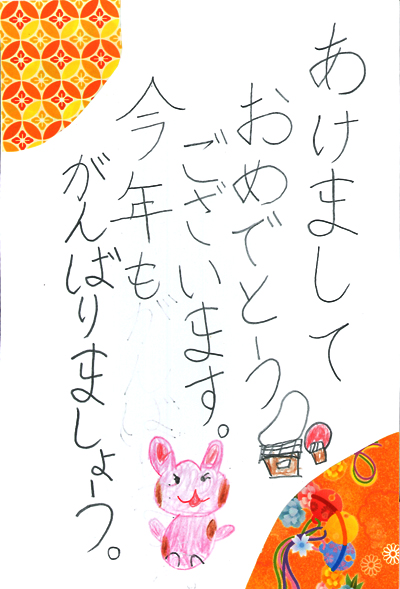 あけまして
おめでとーう
ございます。
今年も
がんばりましょーう。